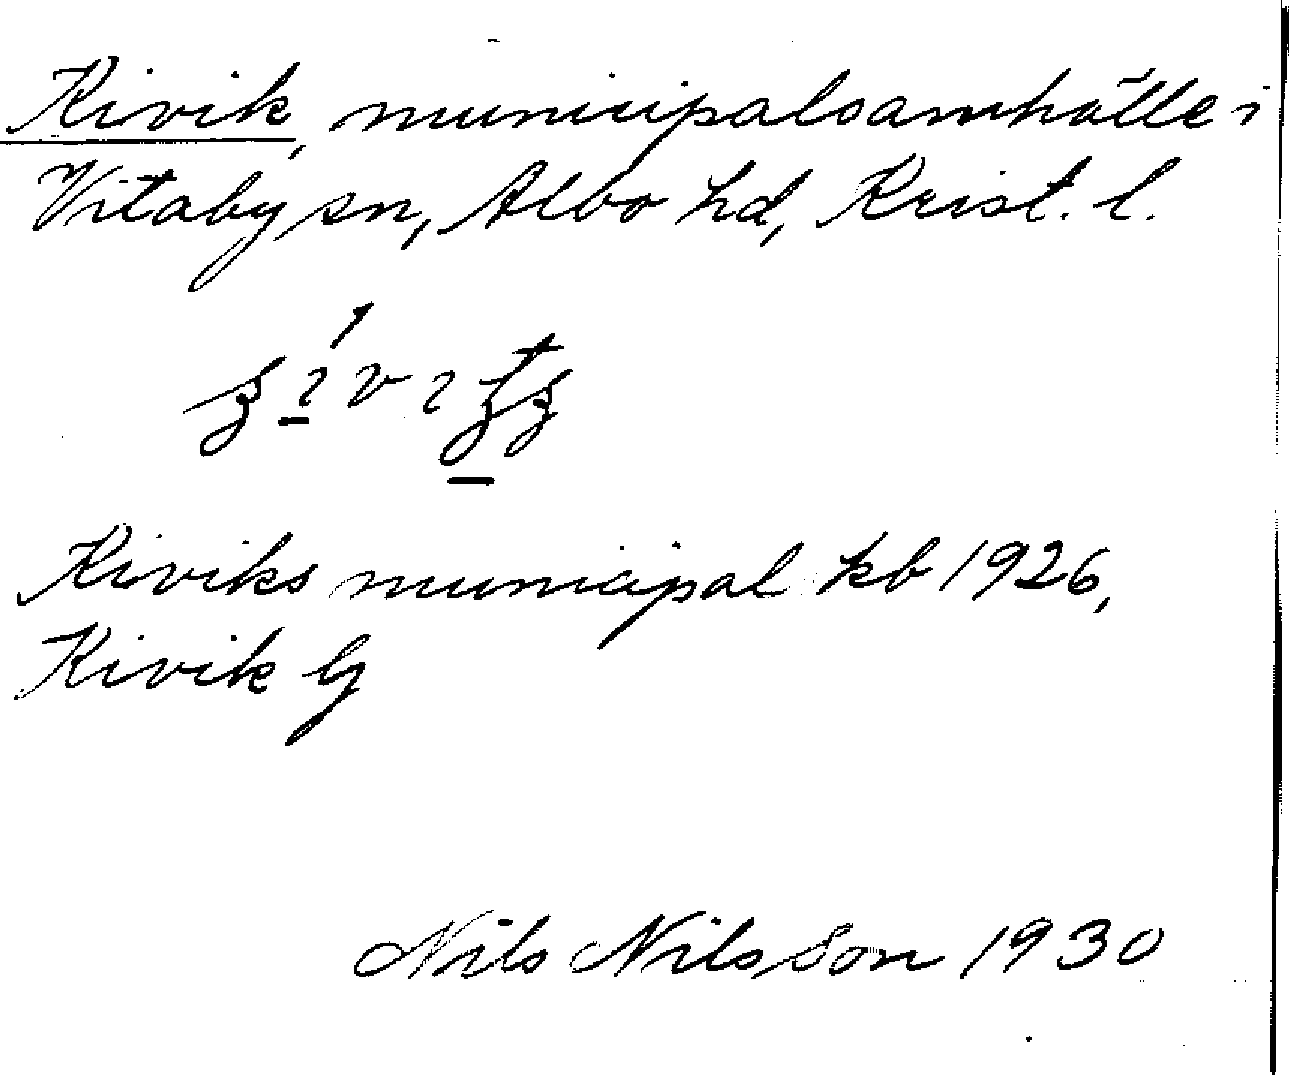 Kivik, municipalsamhälle i
Vitaby sn, Albo hd, Krist. l.
Kiviks municipal kb 1926,
Kivik G
Nils Nilsson 1930